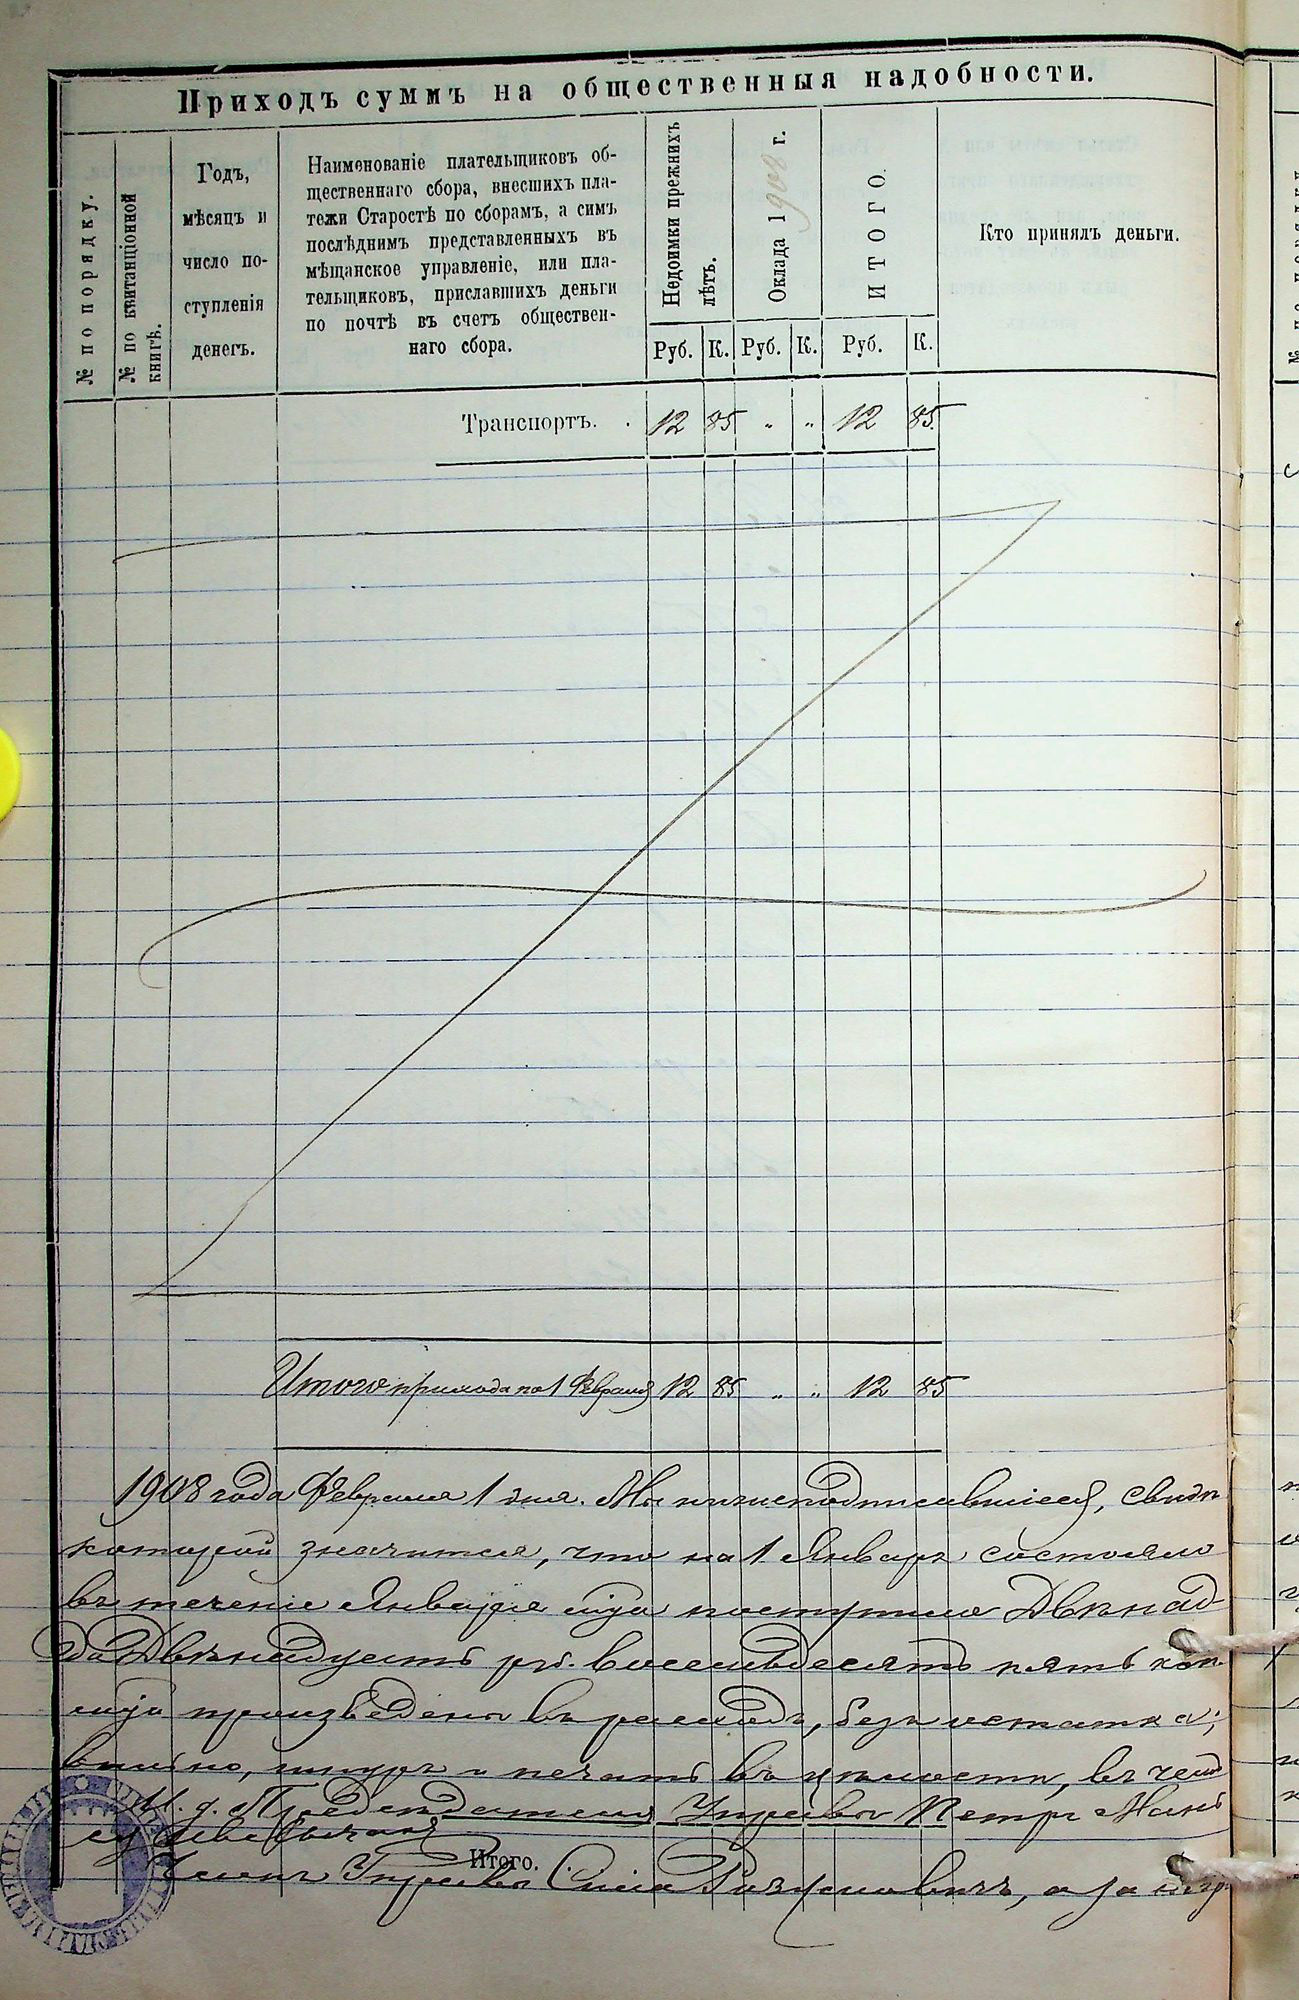 Приходъ суммъ на общественныя надобности.
№ по порядку.
№ по квитанціонной
книгѣ.
Годъ,
мѣсяцъ и
число по-
ступленія
денегъ.
Наименованіе плательщиковъ об-
щественнаго сбора, внесшихъ пла-
тежи Старостѣ по сборамъ, а симъ
послѣднимъ представленныхъ въ
мѣщанское управленіе, или пла-
тельщиковъ, приславшихъ деньги
по почтѣ въ счетъ обществен-
наго сбора.
Недоимки прежнихъ
лѣтъ.
Оклада 1908 г.
ИТОГО.
Кто принялъ деньги.
Руб. К. Руб. К. Руб. К.
Транспортъ. . 12 85 " " 12 85
Итого прихода по 1 Февраля 12 85 " " 12 85
1908 года Февраля 1 дня. Мы нижеподписавшіеся, свид
которой значится, что на 1 Января состояло
въ теченіе Января мѣс. поступило Двѣнад-
да Двѣнадцать рб. восемьдесятъ пять коп.
произведено въ расходъ, безъ остатка;
шнуръ и печать въ цѣлости, въ чемъ
И. д. Предсѣдателя Управы Петръ
Итого.
Членъ Управы а за